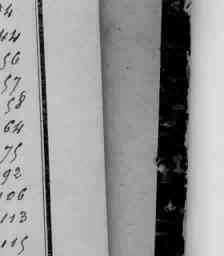 4
44
56
57
58
64
75
92
106
113
115